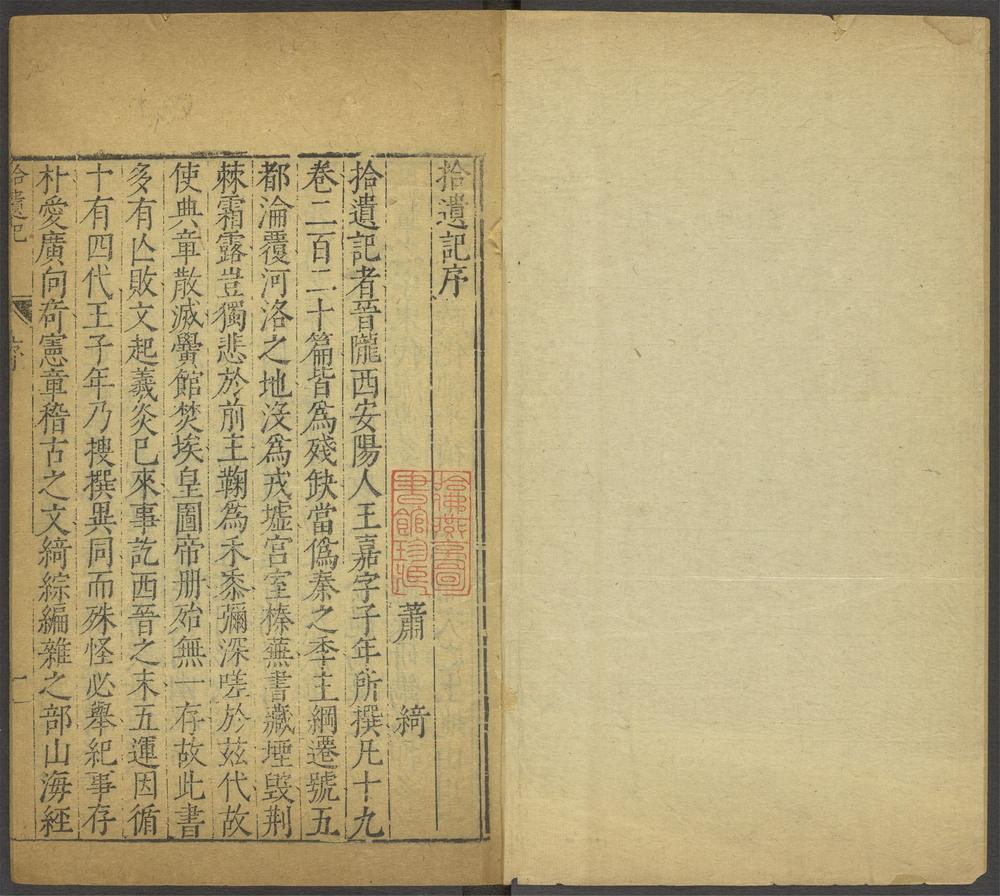 拾遺記序
蕭綺
拾遺記者晉隴西安陽人王嘉字子年所撰凡十九
卷二百二十篇皆爲殘缺當僞秦之季主綱遷號五
都淪覆河洛之地沒爲戎墟宮室榛蕪書藏堙毀荆
棘霜露豈獨悲於前主鞠爲禾黍彌深嗟於玆代故
使典章散滅黌館焚埃皇圖帝册殆無一存故此書
多有亾敗文起羲炎已來事訖西晉之末五運因循
十有四代王子年乃搜撰異同而殊怪必舉紀事存
朴愛廣向奇憲章稽古之文綺綜編雜之部山海經
拾遺記
序
一
哈佛燕京圖
書館珍藏